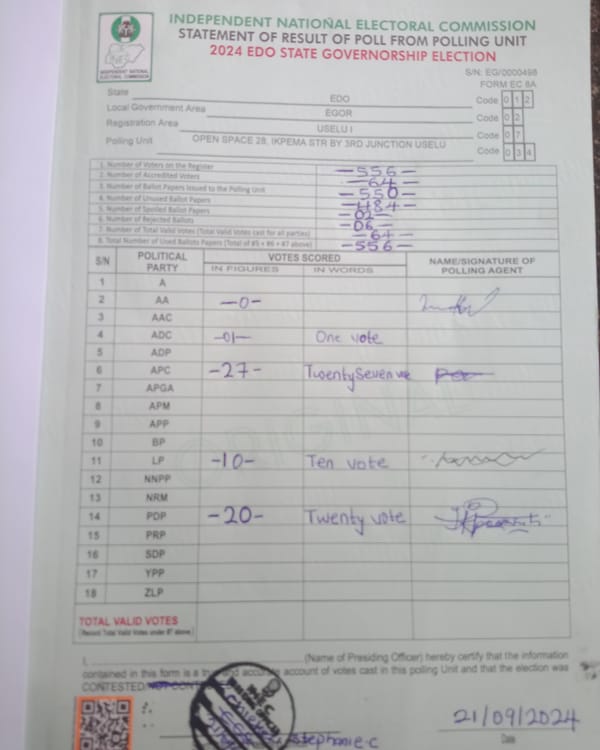 INDEPENDENT NATIONAL ELECTORAL COMMISSION
STATEMENT OF RESULT OF POLL FROM POLLING UNIT
2024 EDO STATE GOVERNORSHIP ELECTION
INEC
INDEPENDENT NATIONAL
ELECTORAL COMMISSION
S/N: EG/0000498
FORM EC 8A
State EDO Code 0 1 2
Local Government Area EGOR Code 0 2
Registration Area USELU I Code 0 7
Polling Unit OPEN SPACE 28, IKPEMA STR BY 3RD JUNCTION USELU Code 0 3 4
1. Number of Voters on the Register -556-
2. Number of Accredited Voters -64-
3. Number of Ballot Papers Issued to the Polling Unit -550-
4. Number of Unused Ballot Papers -484-
5. Number of Spoiled Ballot Papers -02-
6. Number of Rejected Ballots -06-
7. Number of Total Valid Votes (Total Valid Votes cast for all parties) -64-
8. Total Number of Used Ballots Papers (Total of #5 + #6 + #7 above) -556-
S/N POLITICAL PARTY VOTES SCORED NAME/SIGNATURE OF POLLING AGENT
IN FIGURES IN WORDS
1 A
2 AA -0-
3 AAC
4 ADC -01- One vote
5 ADP
6 APC -27- Twenty Seven
7 APGA
8 APM
9 APP
10 BP
11 LP -10- Ten vote
12 NNPP
13 NRM
14 PDP -20- Twenty vote
15 PRP
16 SDP
17 YPP
18 ZLP
TOTAL VALID VOTES
(Record Total Valid Votes under #7 above)
I, (Name of Presiding Officer) hereby certify that the information
contained in this form is a true and accurate account of votes cast in this polling Unit and that the election was
CONTESTED/NOT CONT
INEC
Stephanie C
21/09/2024
Date